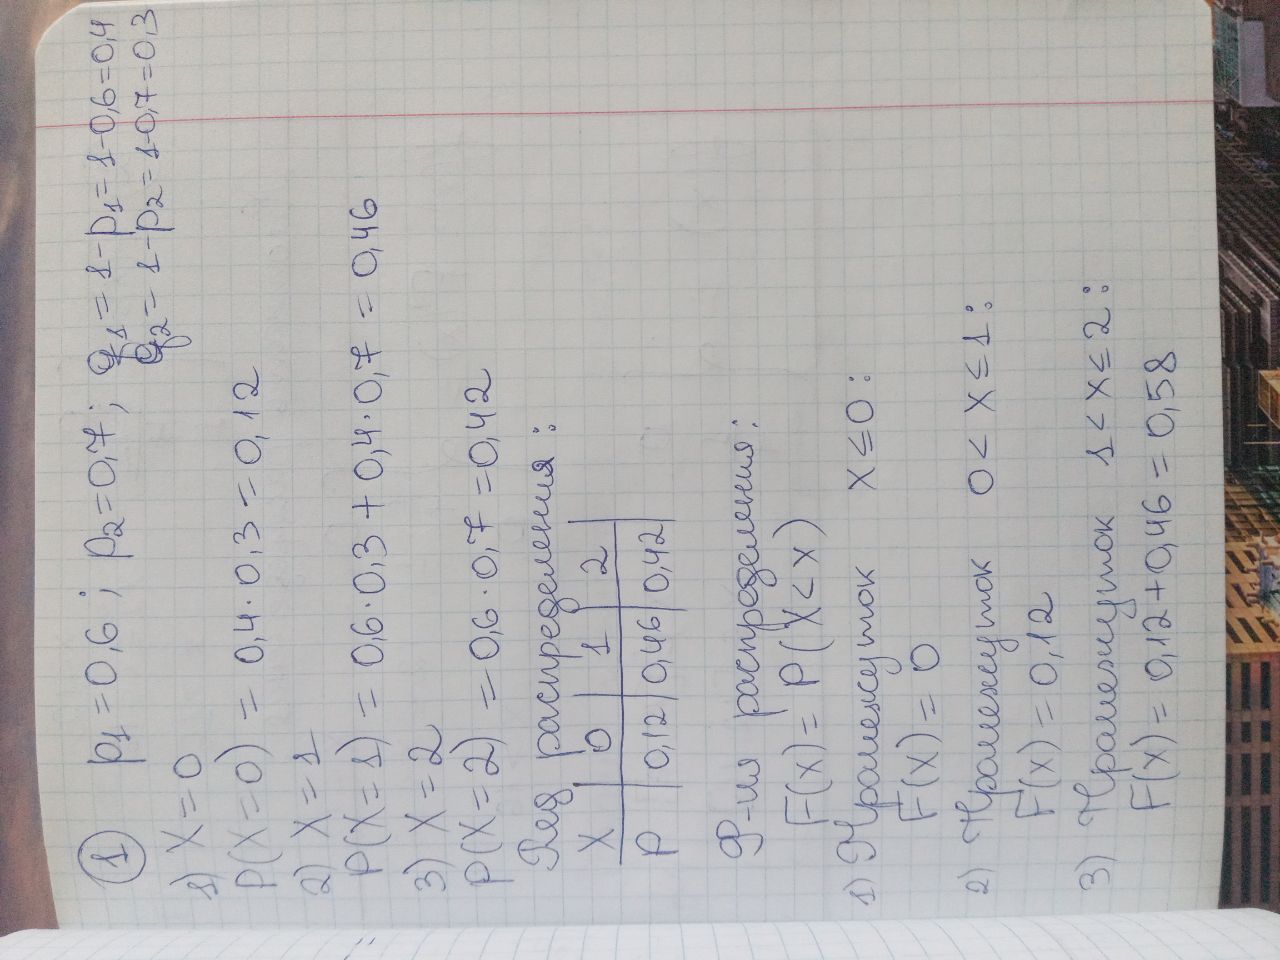 1 p1 = 0,6; p2 = 0,7; q1 = 1-p1 = 1-0,6 = 0,4
q2 = 1-p2 = 1-0,7 = 0,3
1) X = 0
P(X=0) = 0,4 · 0,3 = 0,12
2) X = 1
P(X=1) = 0,6 · 0,3 + 0,4 · 0,7 = 0,46
3) X = 2
P(X=2) = 0,6 · 0,7 = 0,42
Ряд распределения:
X | 0 | 1 | 2
P | 0,12 | 0,46 | 0,42
Ф-ия распределения:
F(x) = P(X < x)
1) Промежуток x ≤ 0:
F(x) = 0
2) Промежуток 0 < x ≤ 1:
F(x) = 0,12
3) Промежуток 1 < x ≤ 2:
F(x) = 0,12 + 0,46 = 0,58